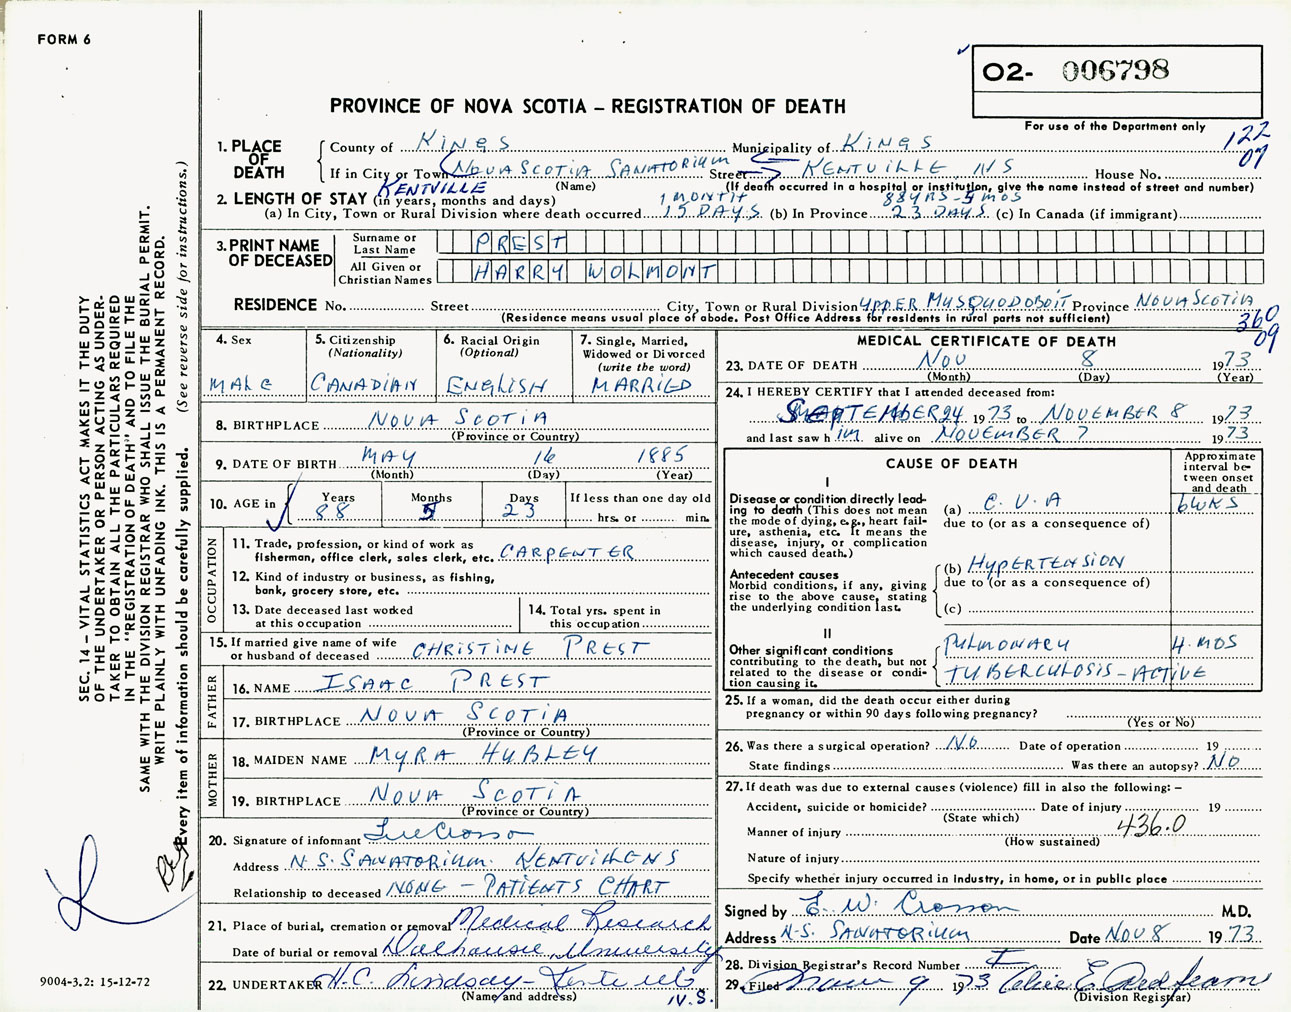 FORM 6
02- 006798
PROVINCE OF NOVA SCOTIA – REGISTRATION OF DEATH
For use of the Department only
122
07
1. PLACE OF DEATH
County of KINGS Municipality of KINGS
If in City or Town NOVA SCOTIA SANATORIUM Street KENTVILLE, NS House No.
KENTVILLE (Name) (If death occurred in a hospital or institution, give the name instead of street and number)
2. LENGTH OF STAY (in years, months and days) 1 MONTH 88 YRS-5 MOS
(a) In City, Town or Rural Division where death occurred 15 DAYS (b) In Province 23 DAYS (c) In Canada (if immigrant)
3. PRINT NAME OF DECEASED
Surname or Last Name PREST
All Given or Christian Names HARRY WOLMONT
RESIDENCE No. Street City, Town or Rural Division UPPER MUSQUODOBOIT Province NOVA SCOTIA
(Residence means usual place of abode. Post Office Address for residents in rural parts not sufficient)
360
09
4. Sex MALE
5. Citizenship (Nationality) CANADIAN
6. Racial Origin (Optional) ENGLISH
7. Single, Married, Widowed or Divorced (write the word) MARRIED
8. BIRTHPLACE NOVA SCOTIA
(Province or Country)
9. DATE OF BIRTH MAY 16 1885
(Month) (Day) (Year)
10. AGE in Years 88 Months 5 Days 23 If less than one day old hrs. or min.
OCCUPATION
11. Trade, profession, or kind of work as fisherman, office clerk, sales clerk, etc. CARPENTER
12. Kind of industry or business, as fishing, bank, grocery store, etc.
13. Date deceased last worked at this occupation
14. Total yrs. spent in this occupation
15. If married give name of wife or husband of deceased CHRISTINE PREST
FATHER
16. NAME ISAAC PREST
17. BIRTHPLACE NOVA SCOTIA
(Province or Country)
MOTHER
18. MAIDEN NAME MYRA HUBLEY
19. BIRTHPLACE NOVA SCOTIA
(Province or Country)
20. Signature of informant
Address N.S. SANATORIUM. KENTVILLE NS
Relationship to deceased NONE - PATIENTS CHART
21. Place of burial, cremation or removal Medical Research
Date of burial or removal Dalhousie University
22. UNDERTAKER H.C. Lindsay - Kentville
(Name and address) N.S.
MEDICAL CERTIFICATE OF DEATH
23. DATE OF DEATH NOV 8 1973
(Month) (Day) (Year)
24. I HEREBY CERTIFY that I attended deceased from:
SEPTEMBER 24 1973 to NOVEMBER 8 1973
and last saw h im alive on NOVEMBER 7 1973
CAUSE OF DEATH
Approximate interval between onset and death
I
Disease or condition directly leading to death (This does not mean the mode of dying, e.g., heart failure, asthenia, etc. It means the disease, injury, or complication which caused death.)
(a) C.V.A 6 WKS
due to (or as a consequence of)
Antecedent causes
Morbid conditions, if any, giving rise to the above cause, stating the underlying condition last.
(b) HYPERTENSION
due to (or as a consequence of)
(c)
II
Other significant conditions contributing to the death, but not related to the disease or condition causing it.
PULMONARY 4 MOS
TUBERCULOSIS - ACTIVE
25. If a woman, did the death occur either during pregnancy or within 90 days following pregnancy?
(Yes or No)
26. Was there a surgical operation? NO Date of operation 19
State findings Was there an autopsy? NO
27. If death was due to external causes (violence) fill in also the following: –
Accident, suicide or homicide? Date of injury 19
(State which)
436.0
Manner of injury
(How sustained)
Nature of injury
Specify whether injury occurred in industry, in home, or in public place
Signed by E. W. Crosson M.D.
Address N.S. SANATORIUM Date NOV 8 1973
28. Division Registrar's Record Number
29. Filed Nov 9 1973
(Division Registrar)
SEC. 14 – VITAL STATISTICS ACT MAKES IT THE DUTY
OF THE UNDERTAKER OR PERSON ACTING AS UNDERTAKER TO OBTAIN ALL THE PARTICULARS REQUIRED
IN THE "REGISTRATION OF DEATH" AND TO FILE THE
SAME WITH THE DIVISION REGISTRAR WHO SHALL ISSUE THE BURIAL PERMIT.
WRITE PLAINLY WITH UNFADING INK. THIS IS A PERMANENT RECORD.
Every item of information should be carefully supplied. (See reverse side for instructions.)
9004-3.2: 15-12-72